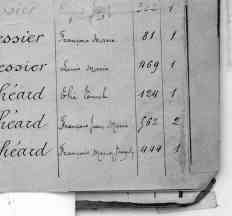 essier François Marie 81 1
essier Louis Marie 469 1
héard Elie 124 1
héard François Jean Marie 562 2
héard François Marie 444 1